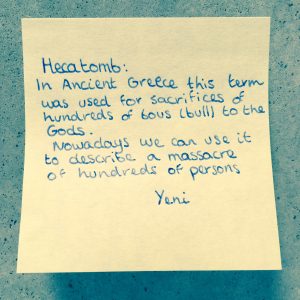 Hecatomb:
In Ancient Greece this term
was used for sacrifices of
hundreds of bous (bull) to the
Gods.
Nowadays we can use it
to describe a massacre
of hundreds of persons
Yeni